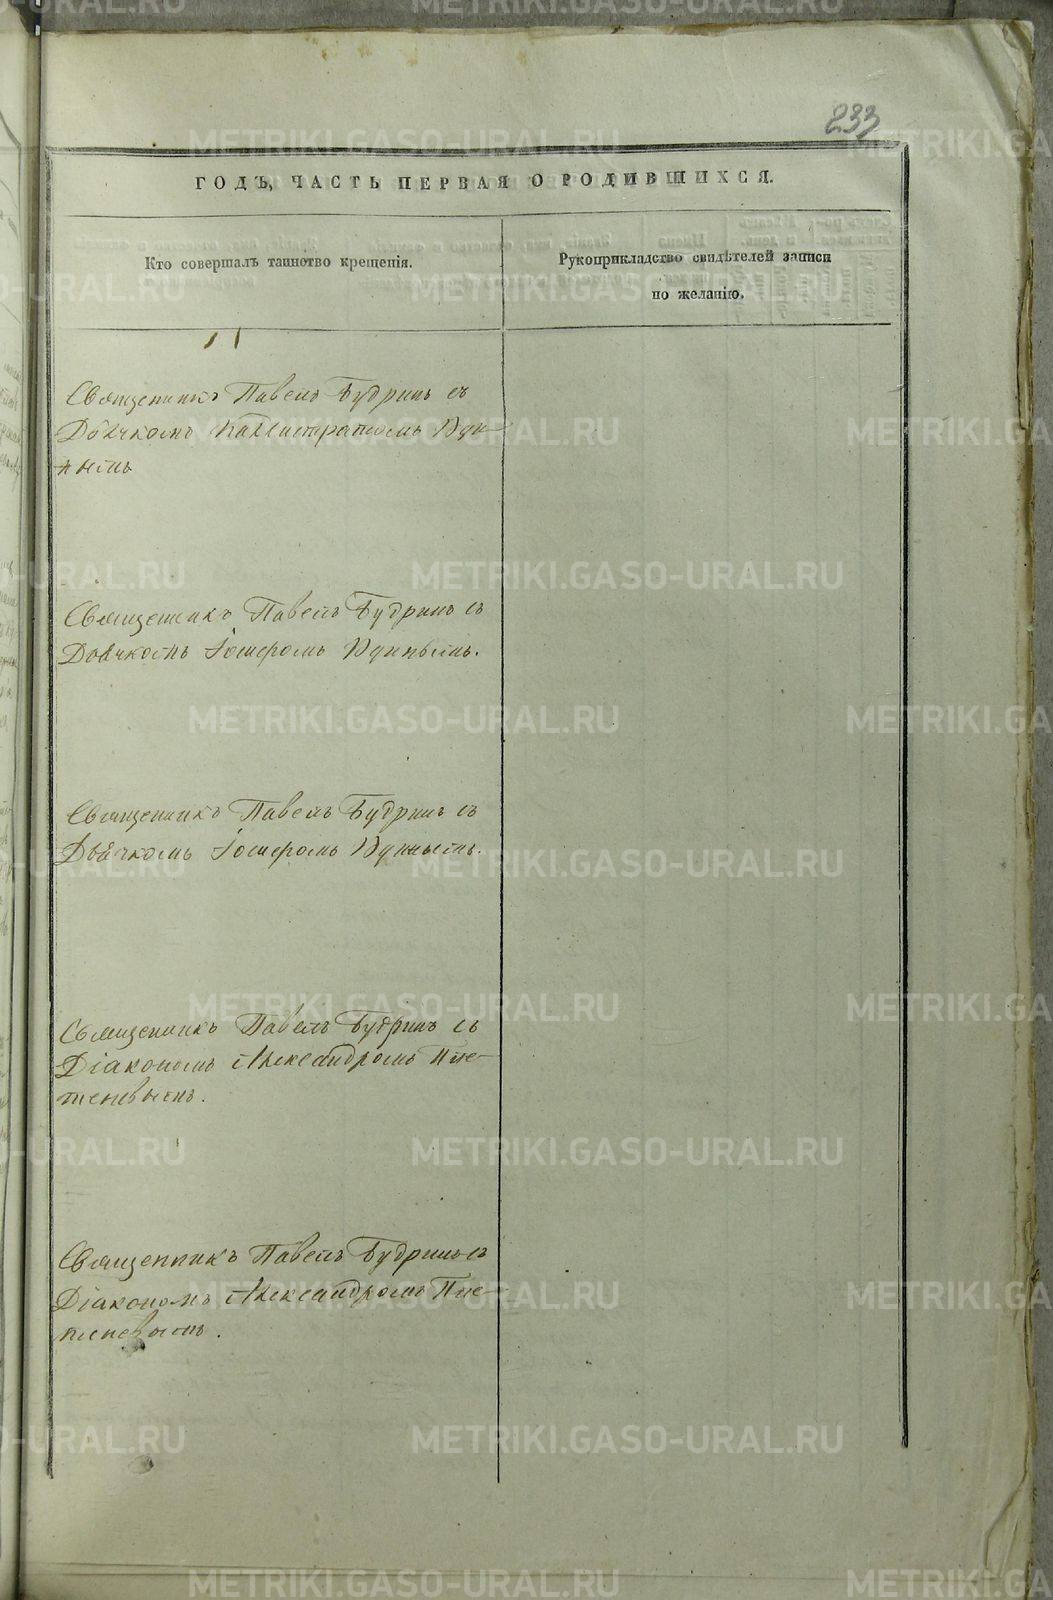 233
ГОДЪ, ЧАСТЬ ПЕРВАЯ О РОДИВШИХСЯ.
Кто совершалъ таинство крещенія.
Рукоприкладство свидѣтелей записи
по желанію.
Священникъ Павелъ Будринъ съ
Дьячкомъ Каллистратомъ
Священникъ Павелъ Будринъ съ
Дьячкомъ
Священникъ Павелъ Будринъ съ
Дьячкомъ
Священникъ Павелъ Будринъ съ
Діакономъ Александромъ Пле-
теневымъ.
Священникъ Павелъ Будринъ съ
Діакономъ Александромъ Пле-
теневымъ.
METRIKI.GASO-URAL.RU